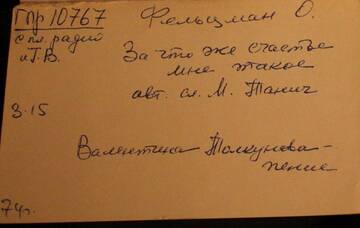 Гпр 10767 Фельцман О.
с пл. радий
и Т.В.
За что же счастье
мне такое
авт. сл. М. Танич
3.15
Валентина Толкунова-
пение
74г.